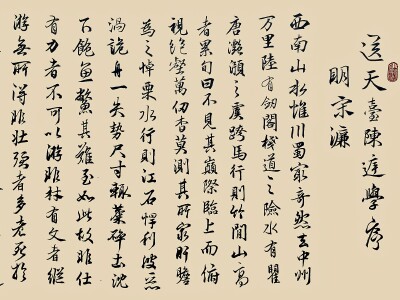 送天臺陳庭學序
明宋濂
西南山水惟川蜀最奇然去中州
万里陸有劍閣棧道之險水有瞿
唐灩澦之虞跨馬行則竹間山高
者累旬日不見其巔際臨上而俯
視絕壑萬仞杳莫測其所窮肝膽
為之悼栗水行則江石悍利波惡
渦詭舟一失勢尺寸輒糜碎土沈
下飽魚鱉其難至如此故非仕
有力者不可以游非材有文者縱
游無所得非壯強者多老死於